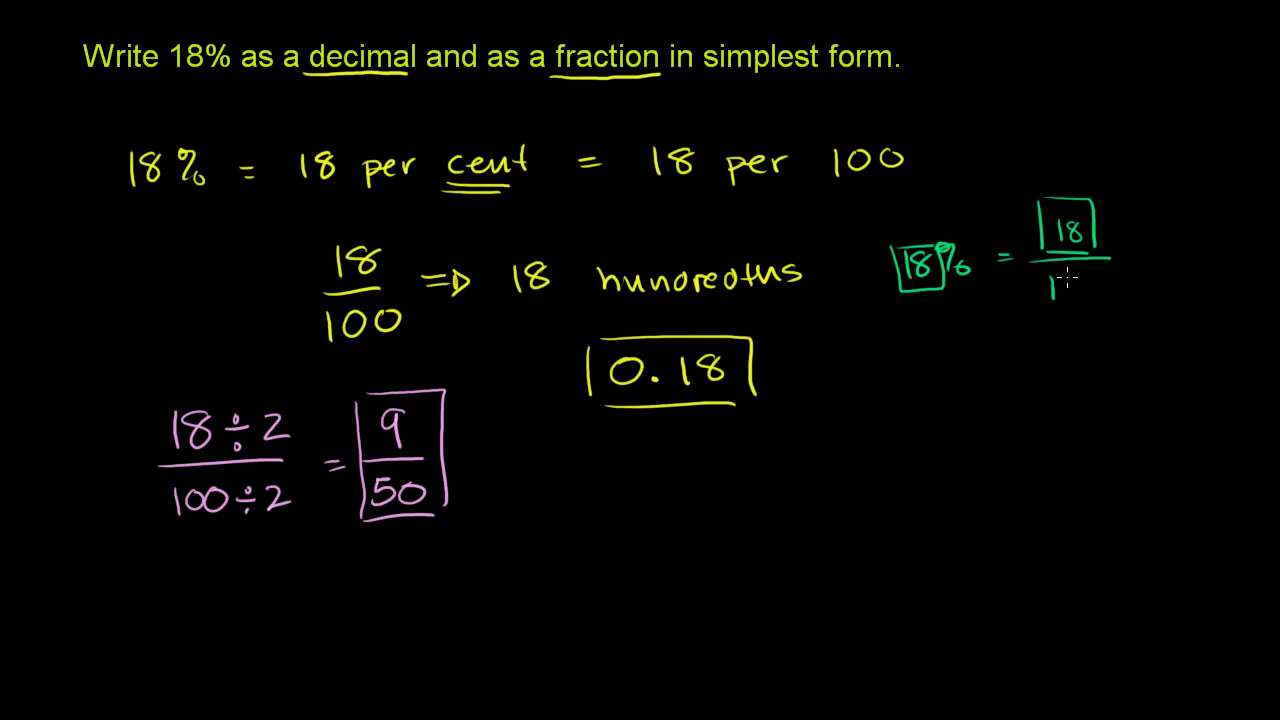 Write 18% as a decimal and as a fraction in simplest form.
18% = 18 per cent = 18 per 100
18/100 ⇒ 18 hundredths
18% = 18/1
0.18
18÷2/100÷2 = 9/50